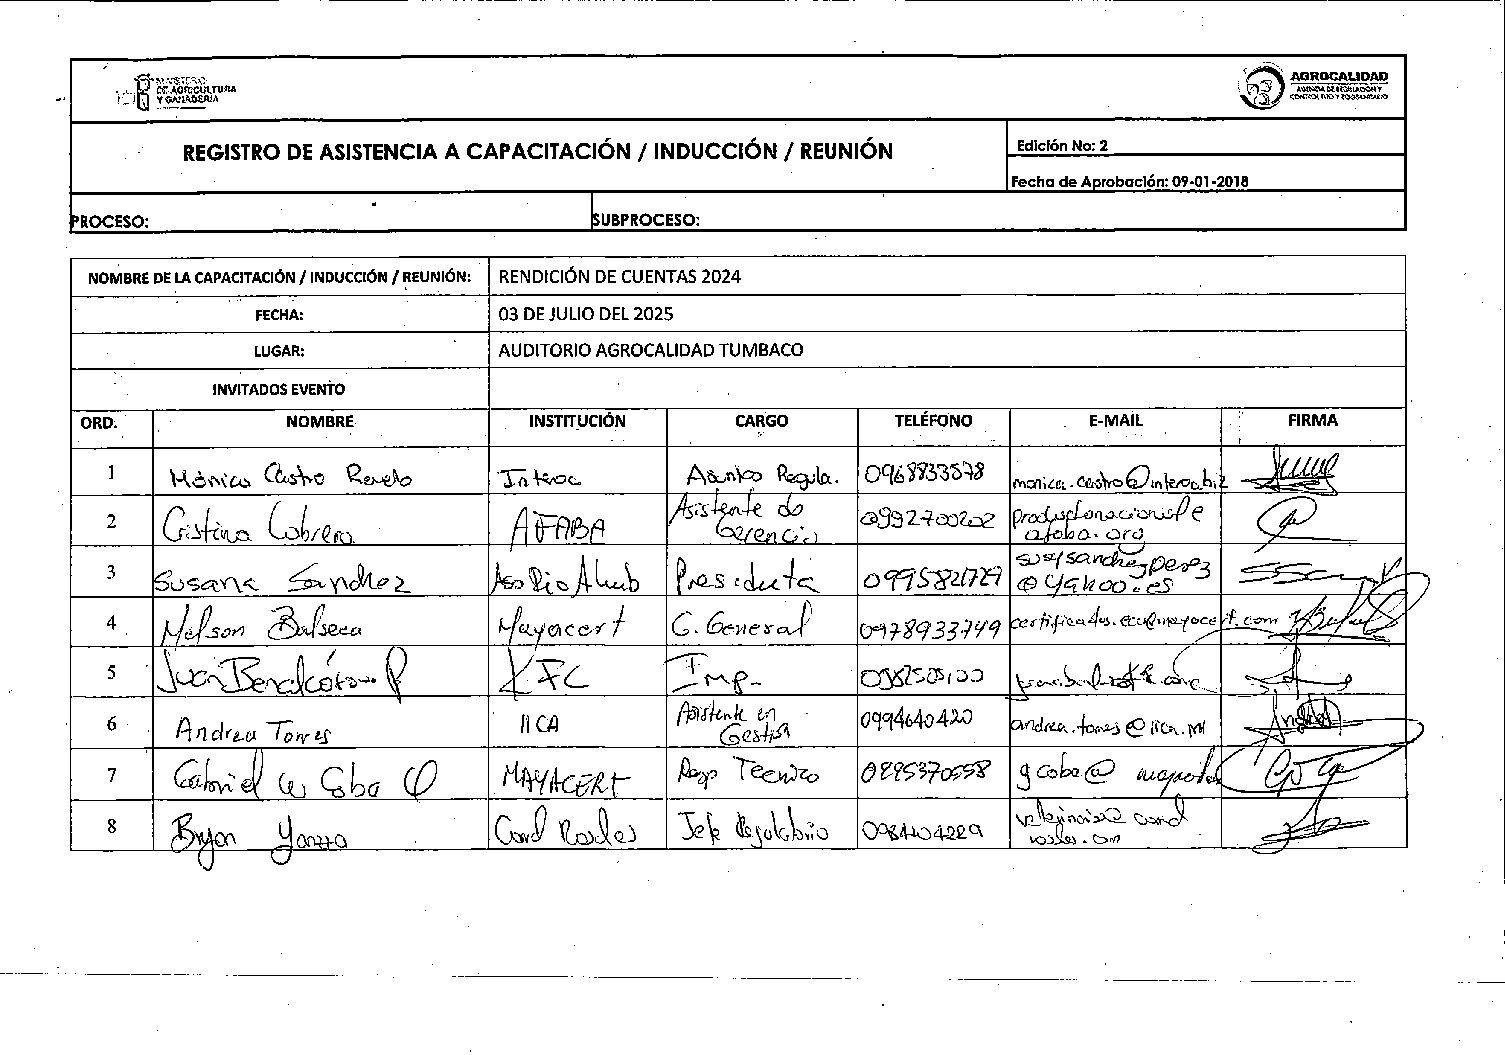 MINISTERIO
DE AGRICULTURA
Y GANADERÍA
AGROCALIDAD
AGENCIA DE REGULACIÓN Y
CONTROL FITO Y ZOOSANITARIO
REGISTRO DE ASISTENCIA A CAPACITACIÓN / INDUCCIÓN / REUNIÓN
Edición No: 2
Fecha de Aprobación: 09-01-2018
PROCESO:
SUBPROCESO:
NOMBRE DE LA CAPACITACIÓN / INDUCCIÓN / REUNIÓN: RENDICIÓN DE CUENTAS 2024
FECHA: 03 DE JULIO DEL 2025
LUGAR: AUDITORIO AGROCALIDAD TUMBACO
INVITADOS EVENTO
ORD. NOMBRE INSTITUCIÓN CARGO TELÉFONO E-MAIL FIRMA
1 Mónica Castro Interoc Asuntos Regula. 0968833578 monica.castro@interoc.biz
2 Cristina Cabrera AFABA Asistente de
Gerencia
afaba.org
3 Susana Sánchez Presidenta 0995821727 susysanchezperez
@yahoo.es
4 Nelson Balseca Mayacert G. General 0978933749
5 Juan KFC Imp.
6 Andrea Torres IICA Asistente en
Gestión 0994640420 andrea.torres@iica.int
7 Gabriel Coba MAYACERT Resp Tecnico gcoba@
8 Bryan Jefe Regulatorio